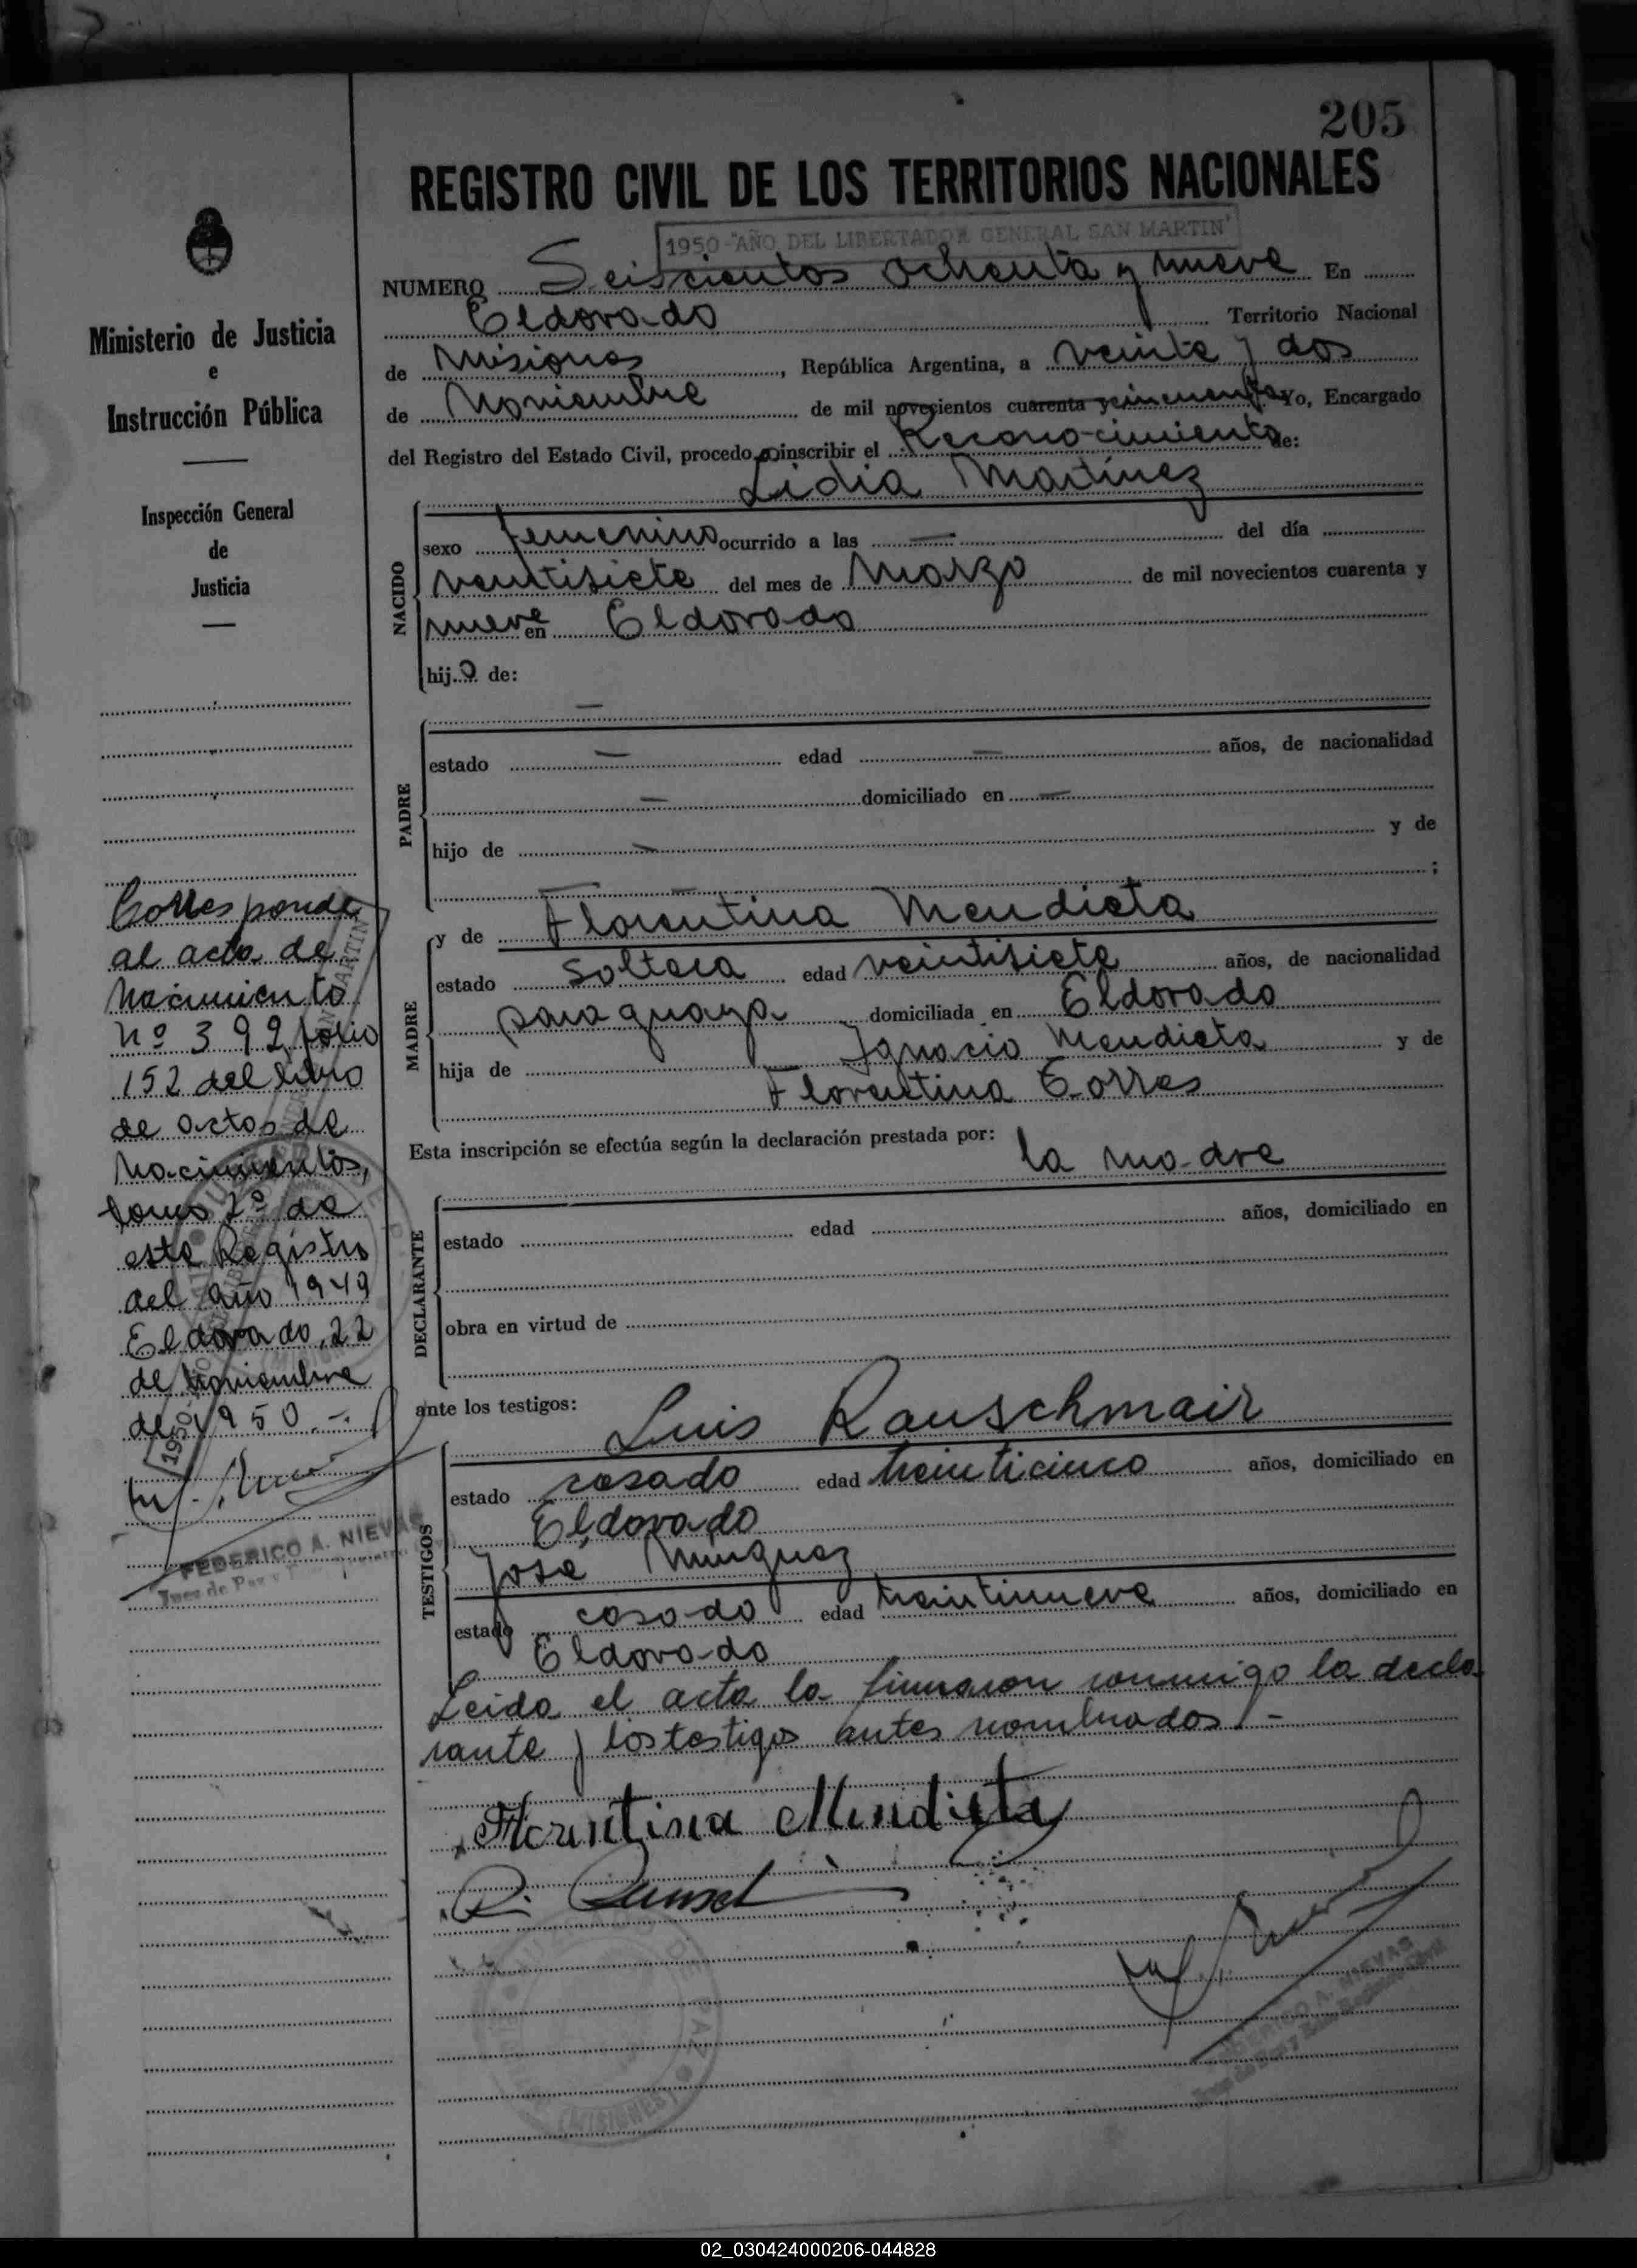 205
REGISTRO CIVIL DE LOS TERRITORIOS NACIONALES
1950-"AÑO DEL LIBERTADOR GENERAL SAN MARTIN"
NUMERO Seiscientos ochenta y nueve En
Eldorado Territorio Nacional
de Misiones, República Argentina, a veinte y dos
de Noviembre de mil novecientos cuarenta y cincuenta Yo, Encargado
del Registro del Estado Civil, procedo a inscribir el Reconocimiento de:
Lidia Martínez
NACIDO
sexo femenino ocurrido a las — del día
veintisiete del mes de Marzo de mil novecientos cuarenta y
nueve en Eldorado
hijo de:
—
PADRE
estado — edad — años, de nacionalidad
— domiciliado en —
hijo de — y de
— ;
MADRE
y de Florentina Mendieta
estado soltera edad veintisiete años, de nacionalidad
paraguaya domiciliada en Eldorado
hija de Ignacio Mendieta y de
Florentina Torres
Esta inscripción se efectúa según la declaración prestada por: la madre
DECLARANTE
estado edad años, domiciliado en
obra en virtud de
ante los testigos: Luis Rauschmair
TESTIGOS
estado casado edad treinticinco años, domiciliado en
Eldorado
José Minguez
estado casado edad treintinueve años, domiciliado en
Eldorado
Leida el acta la firmaron conmigo la decla-
rante y los testigos antes nombrados.-
Florentina Mendieta
FEDERICO A. NIEVAS
(MISIONES)
Ministerio de Justicia
e
Instrucción Pública
Inspección General
de
Justicia
Corresponde
al acta de
Nacimiento
nº 392 folio
152 del libro
de actos de
Nacimientos,
tomo 2º de
este Registro
del año 1949
Eldorado, 22
de Noviembre
de 1950.-
FEDERICO A. NIEVAS
Juez de Paz y
02_030424000206-044828